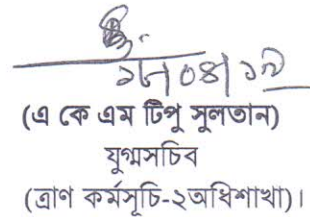 (এ কে এম টিপু সুলতান)
যুগ্মসচিব
(ত্রাণ কর্মসূচি-২অধিশাখা)।